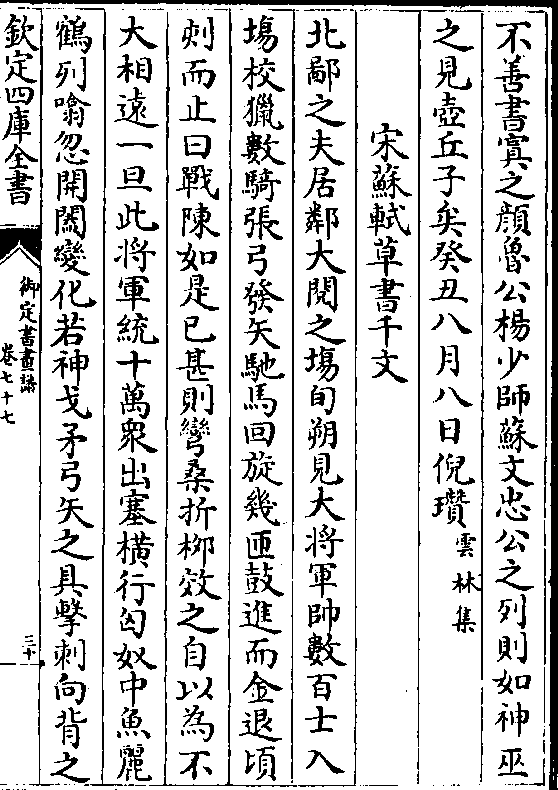 不善書寘之顔魯公楊少師蘇文忠公之列則如神巫
之見壺丘子矣癸丑八月八日倪瓚雲林集
宋蘇軾草書千文
北鄙之夫居鄰大閱之塲旬朔見大將軍帥數百士入
塲校獵數騎張弓發矢馳馬回旋幾匝鼓進而金退頃
刺而止曰戰陳如是已甚則彎桑折栁效之自以為不
大相遠一旦此將軍統十萬衆出塞橫行匈奴中魚麗
鶴列噏忽開闔變化若神戈矛弓矢之具擊刺向背之
欽定四庫全書
御定書畫譜
卷七十七
三十